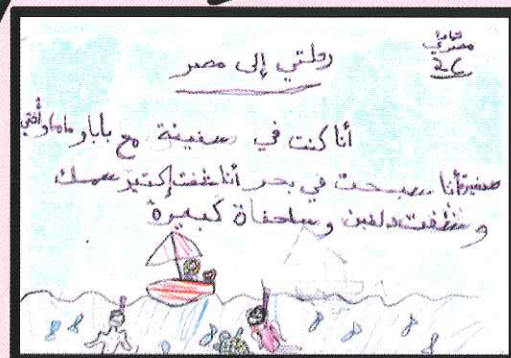 مصري
2C
رحلتي إلى مصر
أنا كنت في سفينة مع بابا و ماما وأختي
صغيرة أنا سبحت في بحر أنا شفت إكتير سمك
و شفت دلفين و سلحفاة كبيرة